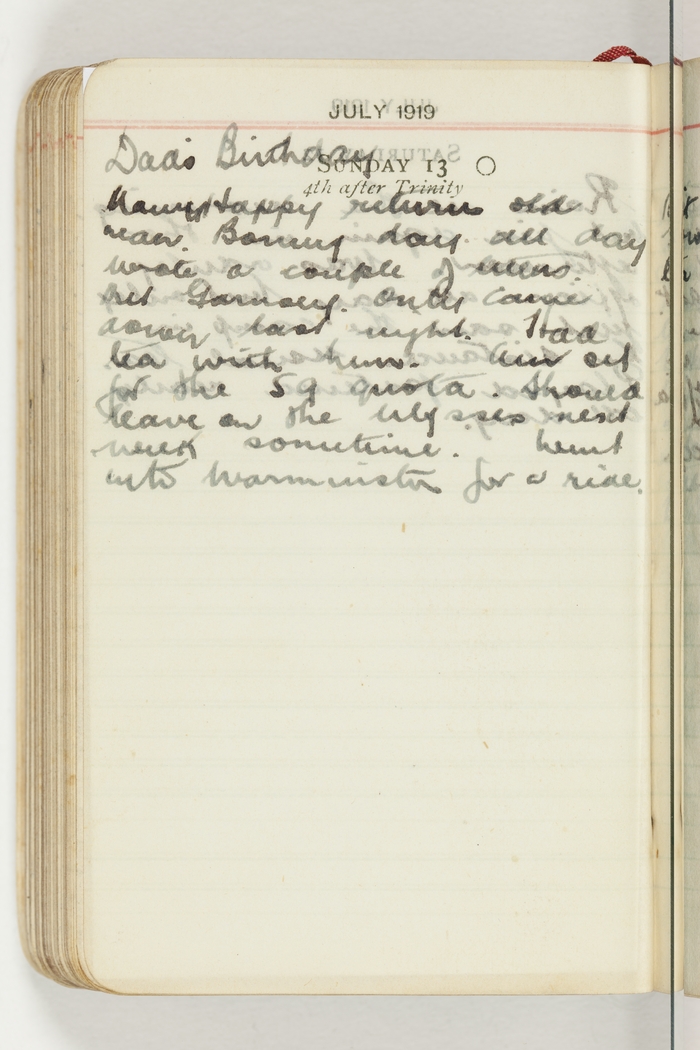 JULY 1919
Dad's Birthday
SUNDAY 13
4th after Trinity
Many Happy returns old
man. Bonny day all day
wrote a couple of letters.
Met Gamsey. Only came
down last night. Had
tea with him. Am set
for the 59 quota. Should
leave on the Ulysses next
week sometime. Went
into Warminster for a ride.